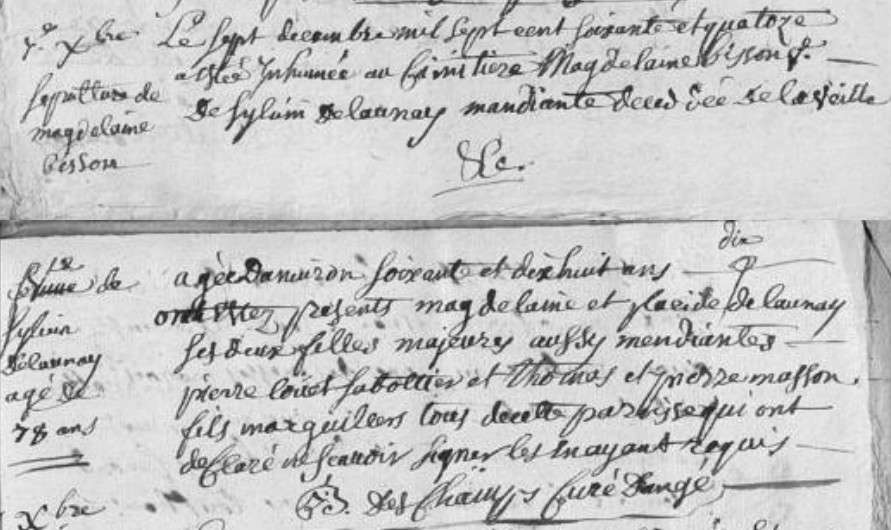 7e Xbre
Sepulture de
magdelaine
bisson
Le sept decembre mil sept cent soixante et quatorze
a esté Inhumée au Cimitiere Magdelaine bisson f.
de sylvin delaunay mandiante deceddéé de la veille
&c.
femme de
sylvin
delaunay
agé de
78 ans
Xbre
dix
agée danviron soixante et dixhuit ans
ont estez presents magdelaine et placide delaunay
ses deux filles majeures aussy mendiantes
pierre loüet sabottier et thomas et pierre masson
fils marguilliers tous de cette paroisse qui ont
declaré ne sçavoir signer les en ayant requis
Des Champs Curé dangé